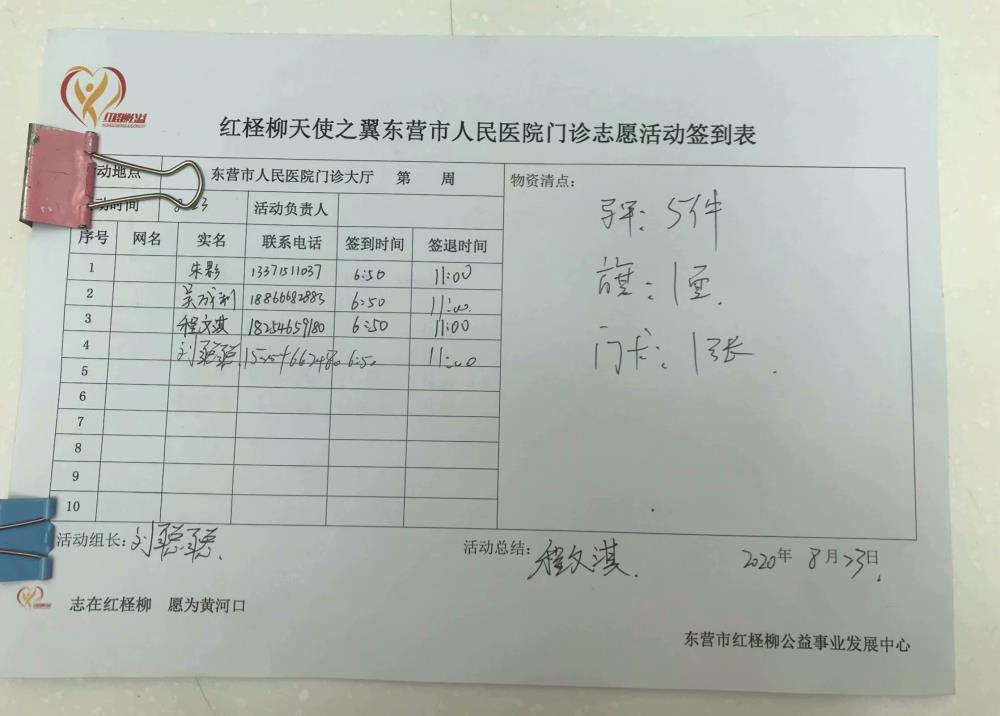 红柽柳公益
红柽柳天使之翼东营市人民医院门诊志愿活动签到表
动地点 东营市人民医院门诊大厅 第 周 物资清点：
动时间 8.23 活动负责人
序号 网名 实名 联系电话 签到时间 签退时间
1 朱影 13371511037 6:50 11:00
2 18866682883 6:50 11:00
3 程文淇 18254659180 6:50 11:00
4 刘聪聪 6:50 11:00
5
6
7
8
9
10
5件
旗：1面.
门卡：1张.
活动组长：刘聪聪. 活动总结：程文淇. 2020年 8月23日
志在红柽柳 愿为黄河口
东营市红柽柳公益事业发展中心